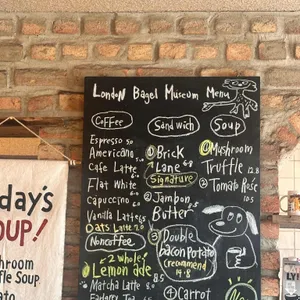 London Bagel Museum Menu
Coffee
Espresso 5.0
Americano
Cafe Latte
Flat White
Capuccino
Vanilla Latte
Oats Latte
Noncoffee
2 Whole!
Lemonade
Matcha Latte
Sandwich
① Brick
Lane
Signature
② Jambon
Butter
③ Double
bacon Potato
(recommend
14.8
④ Carrot
Soup
① Mushroom
Truffle 12.8
② Tomato Rose
10.5
day's
OUP!
hroom
fle Soup
mato